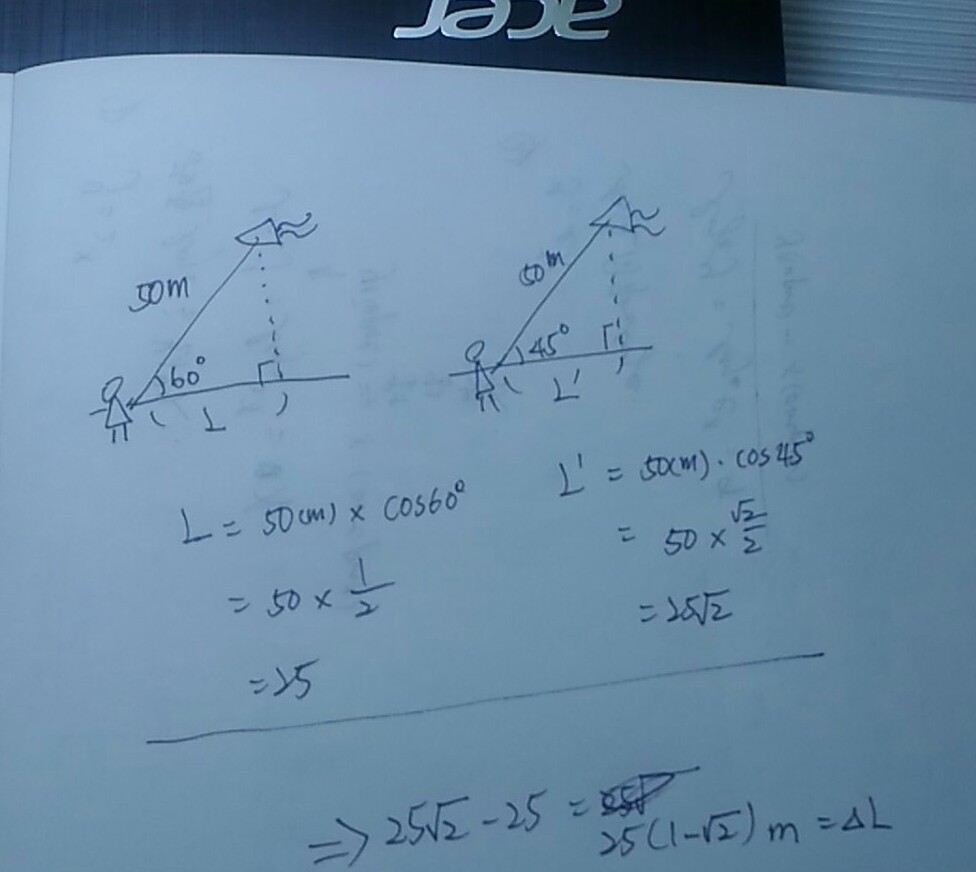 acer
50m
60°
L
50m
45°
L'
L = 50(m) × cos60°
= 50 × 1/2
= 25
L' = 50(m) · cos45°
= 50 × √2/2
= 25√2
⇒ 25√2 - 25 = 25(1-√2) m = ΔL